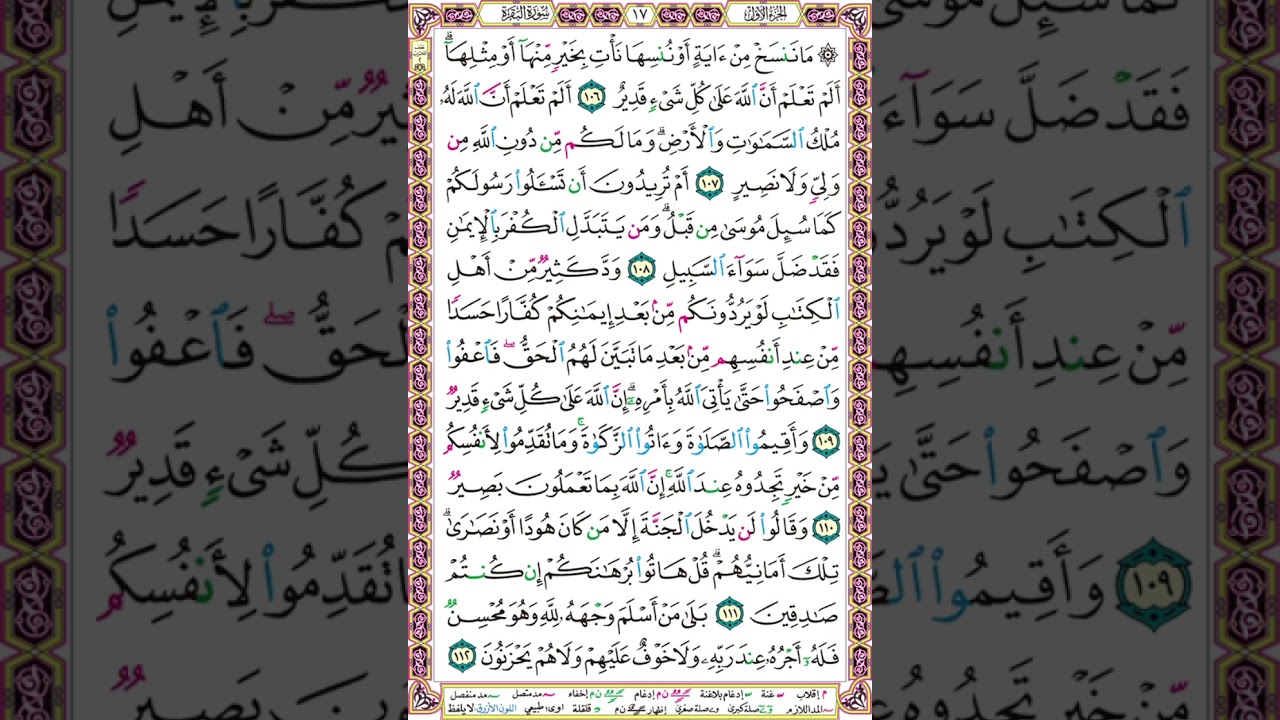 الجزء الأول ١٧ سورة البقرة
۞ مَا نَنسَخْ مِنْ ءَايَةٍ أَوْ نُنسِهَا نَأْتِ بِخَيْرٍ مِّنْهَآ أَوْ مِثْلِهَآ ۗ
أَلَمْ تَعْلَمْ أَنَّ ٱللَّهَ عَلَىٰ كُلِّ شَىْءٍ قَدِيرٌ ١٠٦ أَلَمْ تَعْلَمْ أَنَّ ٱللَّهَ لَهُۥ
مُلْكُ ٱلسَّمَـٰوَٰتِ وَٱلْأَرْضِ ۗ وَمَا لَكُم مِّن دُونِ ٱللَّهِ مِن
وَلِىٍّ وَلَا نَصِيرٍ ١٠٧ أَمْ تُرِيدُونَ أَن تَسْـَٔلُوا۟ رَسُولَكُمْ
كَمَا سُئِلَ مُوسَىٰ مِن قَبْلُ ۗ وَمَن يَتَبَدَّلِ ٱلْكُفْرَ بِٱلْإِيمَـٰنِ
فَقَدْ ضَلَّ سَوَآءَ ٱلسَّبِيلِ ١٠٨ وَدَّ كَثِيرٌ مِّنْ أَهْلِ
ٱلْكِتَـٰبِ لَوْ يَرُدُّونَكُم مِّنۢ بَعْدِ إِيمَـٰنِكُمْ كُفَّارًا حَسَدًا
مِّنْ عِندِ أَنفُسِهِم مِّنۢ بَعْدِ مَا تَبَيَّنَ لَهُمُ ٱلْحَقُّ ۖ فَٱعْفُوا۟
وَٱصْفَحُوا۟ حَتَّىٰ يَأْتِىَ ٱللَّهُ بِأَمْرِهِۦٓ ۗ إِنَّ ٱللَّهَ عَلَىٰ كُلِّ شَىْءٍ قَدِيرٌ
١٠٩ وَأَقِيمُوا۟ ٱلصَّلَوٰةَ وَءَاتُوا۟ ٱلزَّكَوٰةَ ۚ وَمَا تُقَدِّمُوا۟ لِأَنفُسِكُم
مِّنْ خَيْرٍ تَجِدُوهُ عِندَ ٱللَّهِ ۗ إِنَّ ٱللَّهَ بِمَا تَعْمَلُونَ بَصِيرٌ
١١٠ وَقَالُوا۟ لَن يَدْخُلَ ٱلْجَنَّةَ إِلَّا مَن كَانَ هُودًا أَوْ نَصَـٰرَىٰ ۗ
تِلْكَ أَمَانِيُّهُمْ ۗ قُلْ هَاتُوا۟ بُرْهَـٰنَكُمْ إِن كُنتُمْ
صَـٰدِقِينَ ١١١ بَلَىٰ مَنْ أَسْلَمَ وَجْهَهُۥ لِلَّهِ وَهُوَ مُحْسِنٌ
فَلَهُۥٓ أَجْرُهُۥ عِندَ رَبِّهِۦ وَلَا خَوْفٌ عَلَيْهِمْ وَلَا هُمْ يَحْزَنُونَ ١١٢
م إقلاب غنة إدغام بلاغنة ن م إدغام ن م إخفاء مد متصل مد منفصل
المد اللازم صلة كبرى صلة صغرى إظهار ن م قلقلة اوى طبيعي اللون الأزرق لا يلفظ